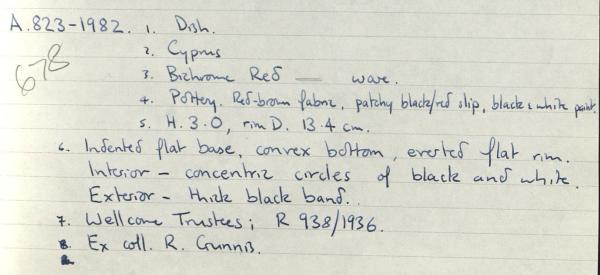 A.823-1982. 1. Dish.
678
2. Cyprus
3. Bichrome Red — ware.
4. Pottery. Red-brown fabric, patchy black/red slip, black & white paint.
5. H. 3.0, rim D. 13.4 cm.
6. Indented flat base, convex bottom, everted flat rim.
Interior - concentric circles of black and white.
Exterior - thick black band.
7. Wellcome Trustees; R 938/1936.
8. Ex coll. R. Gunnis.